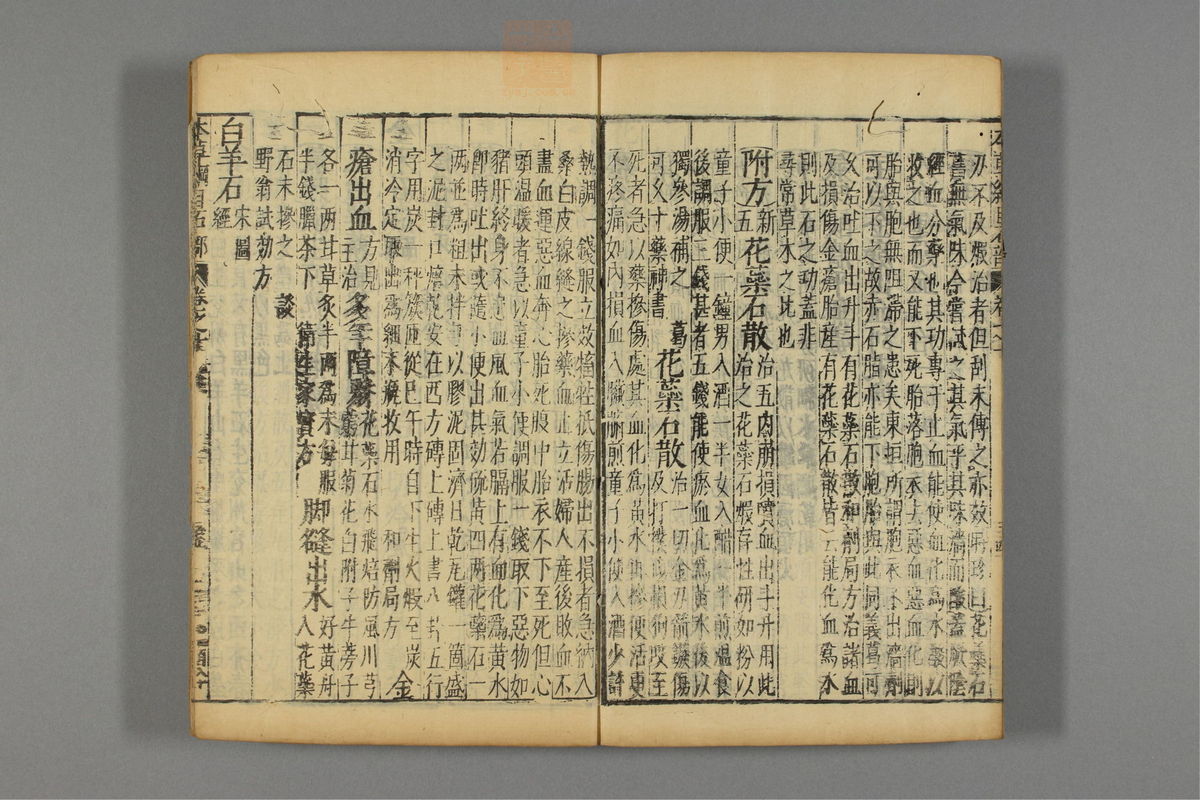 刃不及煅治者但刮末傅之亦效時珍曰花蘂石
舊無氣味今嘗試之其氣平其味濇而酸蓋厥陰
經血分藥也其功專于止血能使血化爲水酸以
收之也而又能下死胎落胞衣去惡血惡血化則
胎與胞無阻滯之患矣東垣所謂胞衣不出濇劑
可以下之故赤石脂亦能下胞胎與此同義葛可
久治吐血出升斗有花蘂石散和劑局方治諸血
及損傷金瘡胎産有花蘂石散皆云能化血爲水
則此石之功蓋非
尋常草木之比也
附方 新五 花蘂石散 治五内崩損噴血出斗升用此
治之花蘂石煅存性研如粉以
童子小便一鍾男入酒一半女入醋一半煎温食
後調服三錢甚者五錢能使瘀血化爲黃水後以
獨參湯補之 葛
可久十藥神書 花蘂石散 治一切金刃箭鏃傷
及打撲傷損狗咬至
死者急以藥摻傷處其血化爲黃水再摻便活更
不疼痛如内損血入臟腑煎童子小便入酒少許
熱調一錢服立效畜牲抵傷腸出不損者急納入
桑白皮線縫之摻藥血止立活婦人産後敗血不
盡血運惡血奔心胎死腹中胎衣不下至死但心
頭温暖者急以童子小便調服一錢取下惡物如
豬肝終身不患血風血氣若膈上有血化爲黃水
卽時吐出或隨小便出其效硫黃四兩花蘂石一
兩並爲粗末拌勻以膠泥固濟日乾瓦罐一箇盛
之泥封口焙乾安在四方磚上磚上書八卦五行
字用炭一秤簇匝從巳午時自下生火煅至炭
消冷定取出爲細末瓶收用 和劑局方 金
瘡出血 方見
主治 多年障翳 花蘂石水飛焙防風川芎
甘菊花白附子牛蒡子
各一兩甘草炙半兩爲末每服
半錢臘茶下 衛生家寶方 脚縫出水 好黃丹
入花蘂
石末摻之 談
野翁試效方
白羊石 宋圖
經